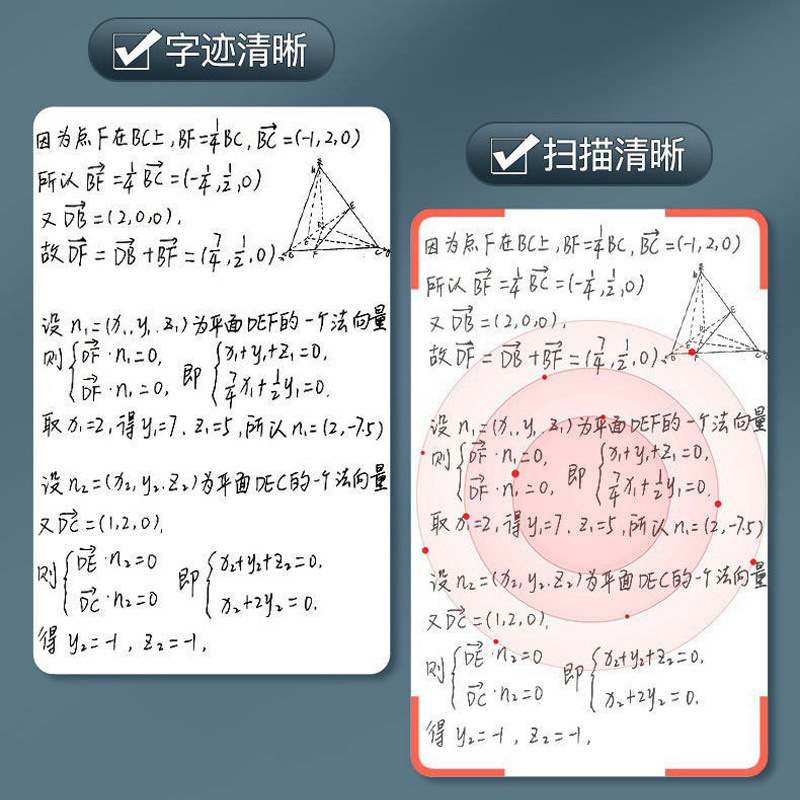 字迹清晰
因为点F在BC上,BF=1/4BC,BC→=(-1,2,0)
所以BF→=1/4BC→=(-1/4,1/2,0)
又DB→=(2,0,0),
故DF→=DB→+BF→=(7/4,1/2,0)
设n₁=(x₁,y₁,z₁)为平面DEF的一个法向量
则{DF→·n₁=0, 即{x₁+y₁+z₁=0,
DF→·n₁=0, 7/4x₁+1/2y₁=0.
取x₁=2,得y₁=7、z₁=5,所以n₁=(2,-7.5)
设n₂=(x₂,y₂.z₂)为平面DEC的一个法向量
又DC→=(1,2,0),
则{DE→·n₂=0 即{x₂+y₂+z₂=0,
DC→·n₂=0 x₂+2y₂=0.
得y₂=-1,z₂=-1,
扫描清晰
因为点F在BC上,BF=1/4BC,BC→=(-1,2,0)
所以BF→=1/4BC→=(-1/4,1/2,0)
又DB→=(2,0,0),
故DF→=DB→+BF→=(7/4,1/2,0)
设n₁=(x₁,y₁,z₁)为平面DEF的一个法向量
则{DF→·n₁=0, 即{x₁+y₁+z₁=0,
DF→·n₁=0, 7/4x₁+1/2y₁=0.
取x₁=2,得y₁=7、z₁=5,所以n₁=(2,-7.5)
设n₂=(x₂,y₂.z₂)为平面DEC的一个法向量
又DC→=(1,2,0),
则{DE→·n₂=0 即{x₂+y₂+z₂=0,
DC→·n₂=0 x₂+2y₂=0.
得y₂=-1,z₂=-1,